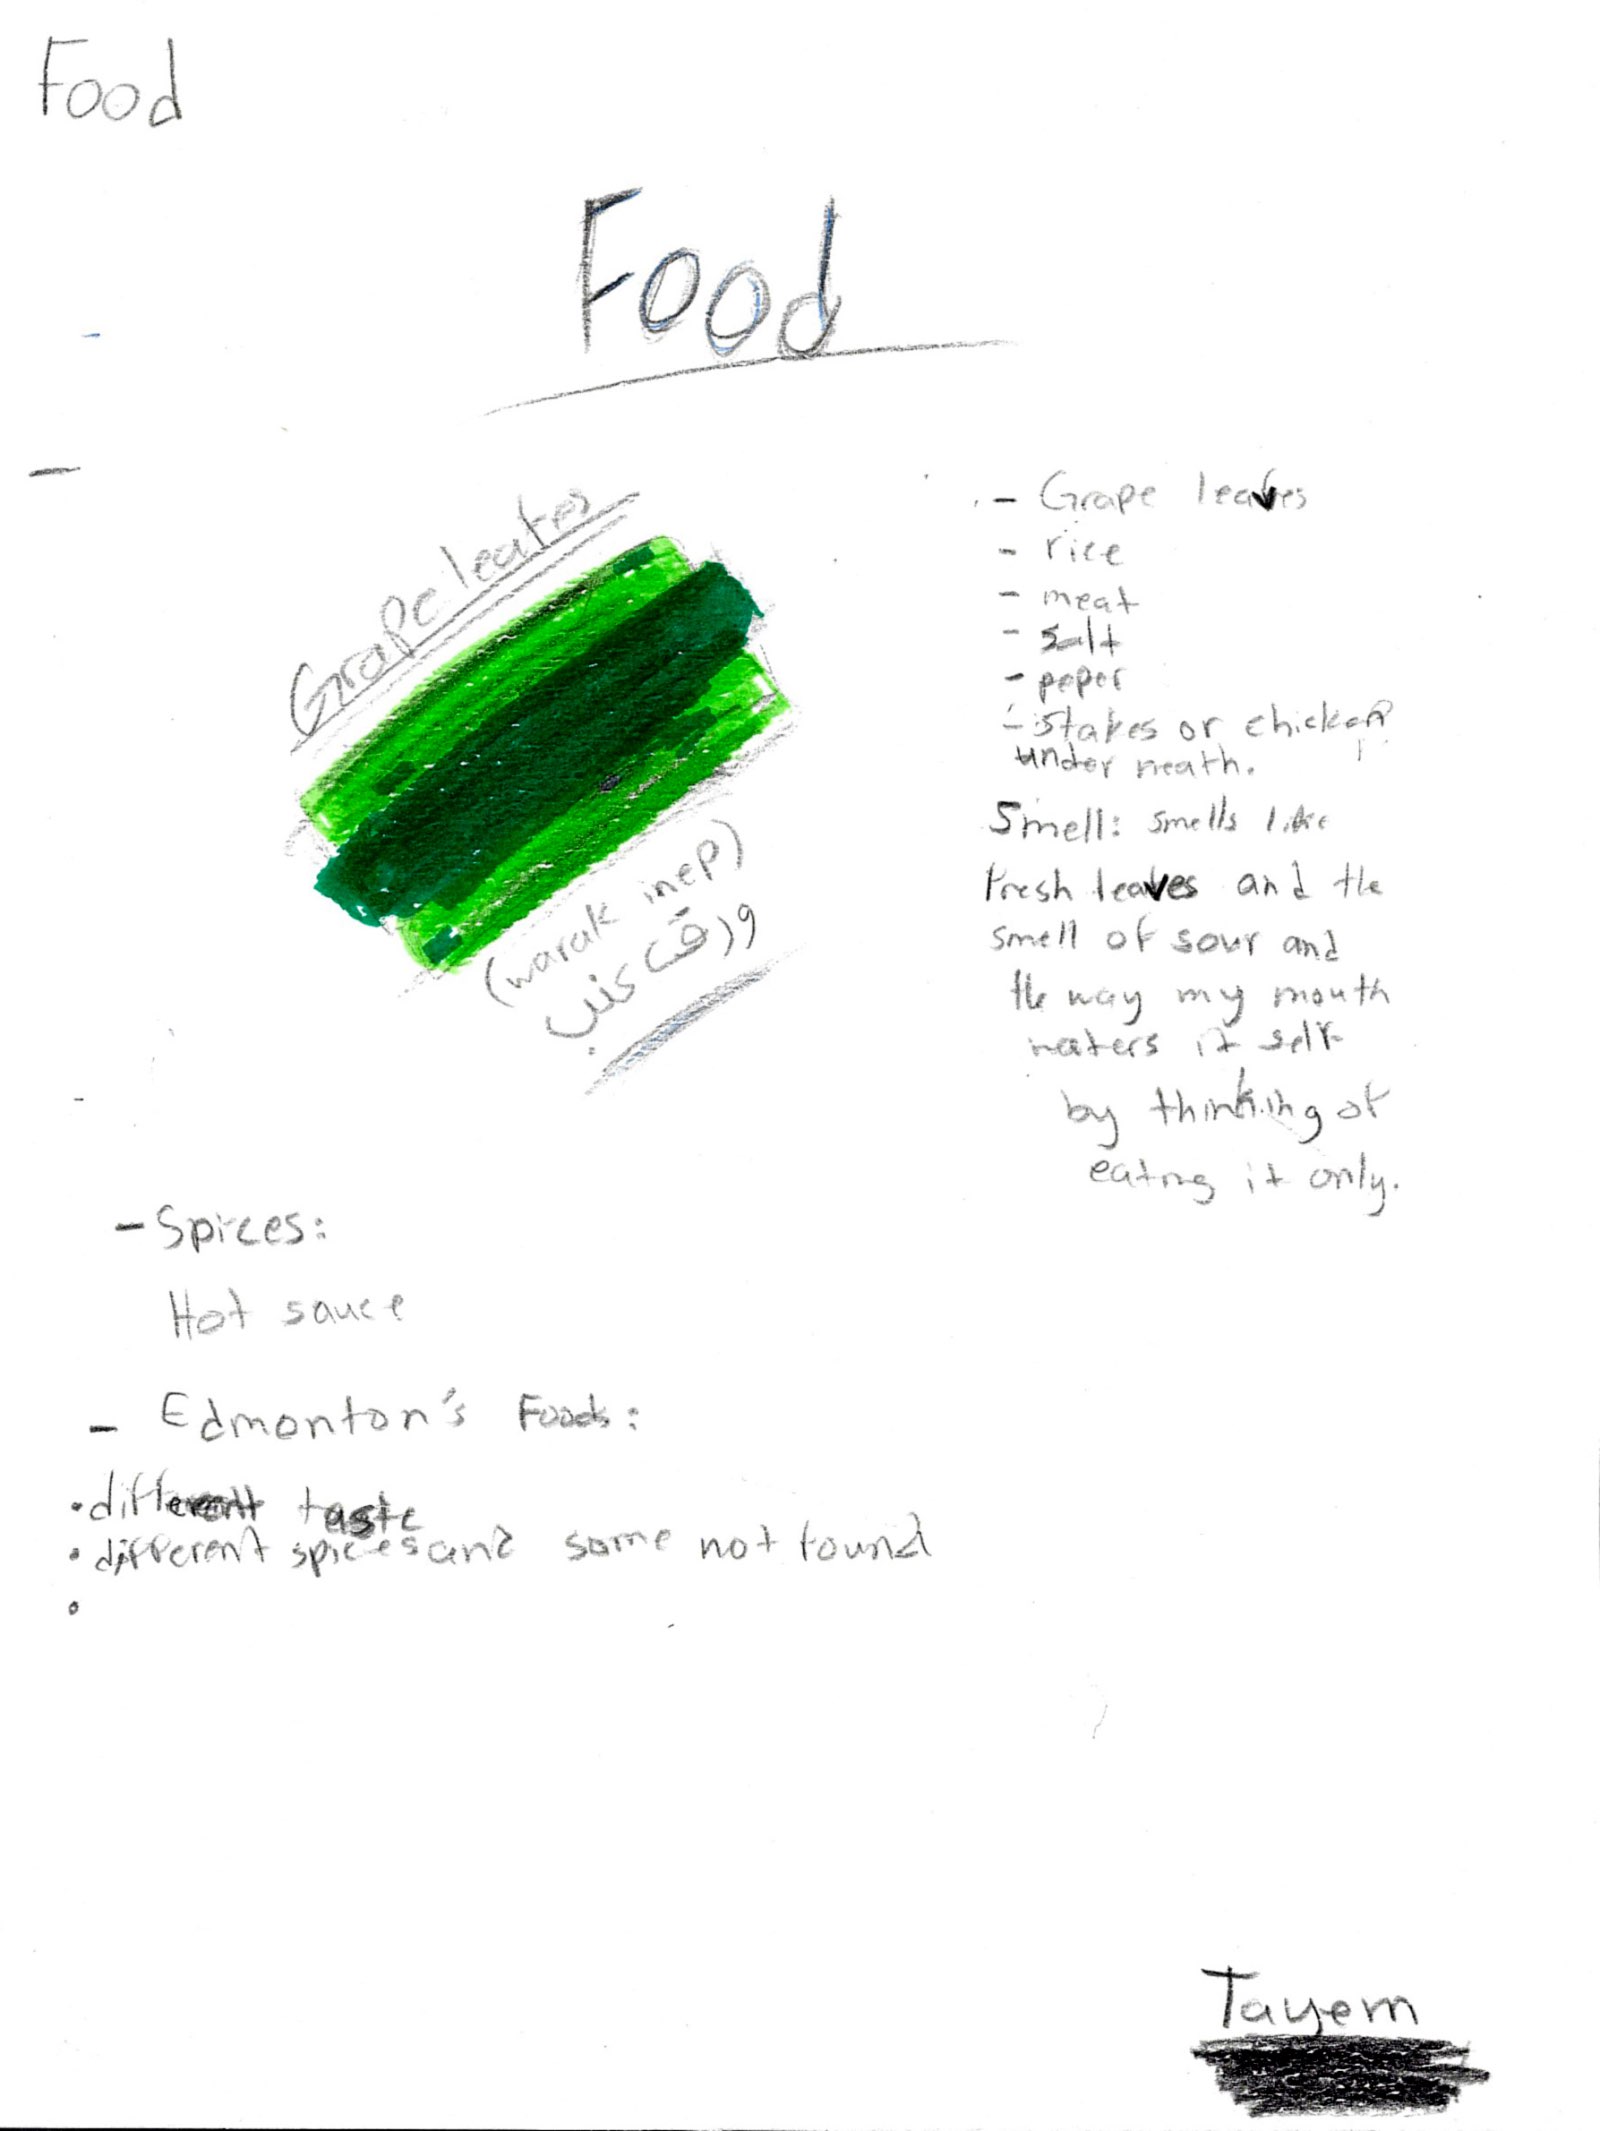 Food
Food
Grape leates
(warak inep)
ورق عنب
- Grape leaves
- rice
- meat
- salt
- peper
- stakes or chicken
under neath.
Smell: smells like
fresh leaves and the
smell of sour and
the way my mouth
waters it self
by thinking of
eating it only.
- Spices:
Hot sauce
- Edmonton's Foods:
• different taste
• different spices and some not found
•
Tayem